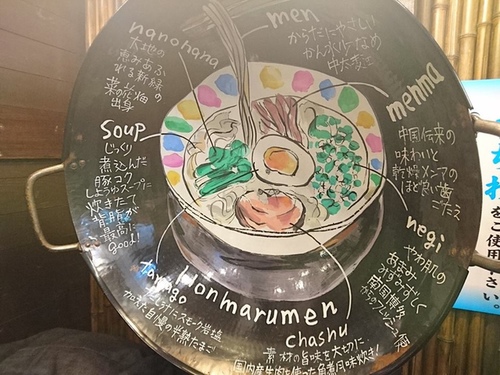 nanohana
大地の
恵みあふ
れる新緑
の
菜の花畑
の
出身
men
からだにやさしい
かん水少なめ
中太麺
menma
中国伝来の
味わいと
乾燥メンマの
ほど良い歯
ごたえ
Soup
じっくり
煮込んだ
豚コク
しょうゆスープに
炊きたて
背脂が
最高に
good!
negi
やわ肌の
あまみ
みずみずしく
南国博多
tamago
スモーク岩塩
自慢の半熟たまご
Honmarumen
chashu
素材の旨味を大切に
国内産生肉を使った角煮風味炊き!
をご
使用
さい。